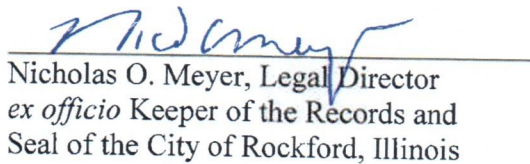 Nicholas O. Meyer, Legal Director
ex officio Keeper of the Records and
Seal of the City of Rockford, Illinois